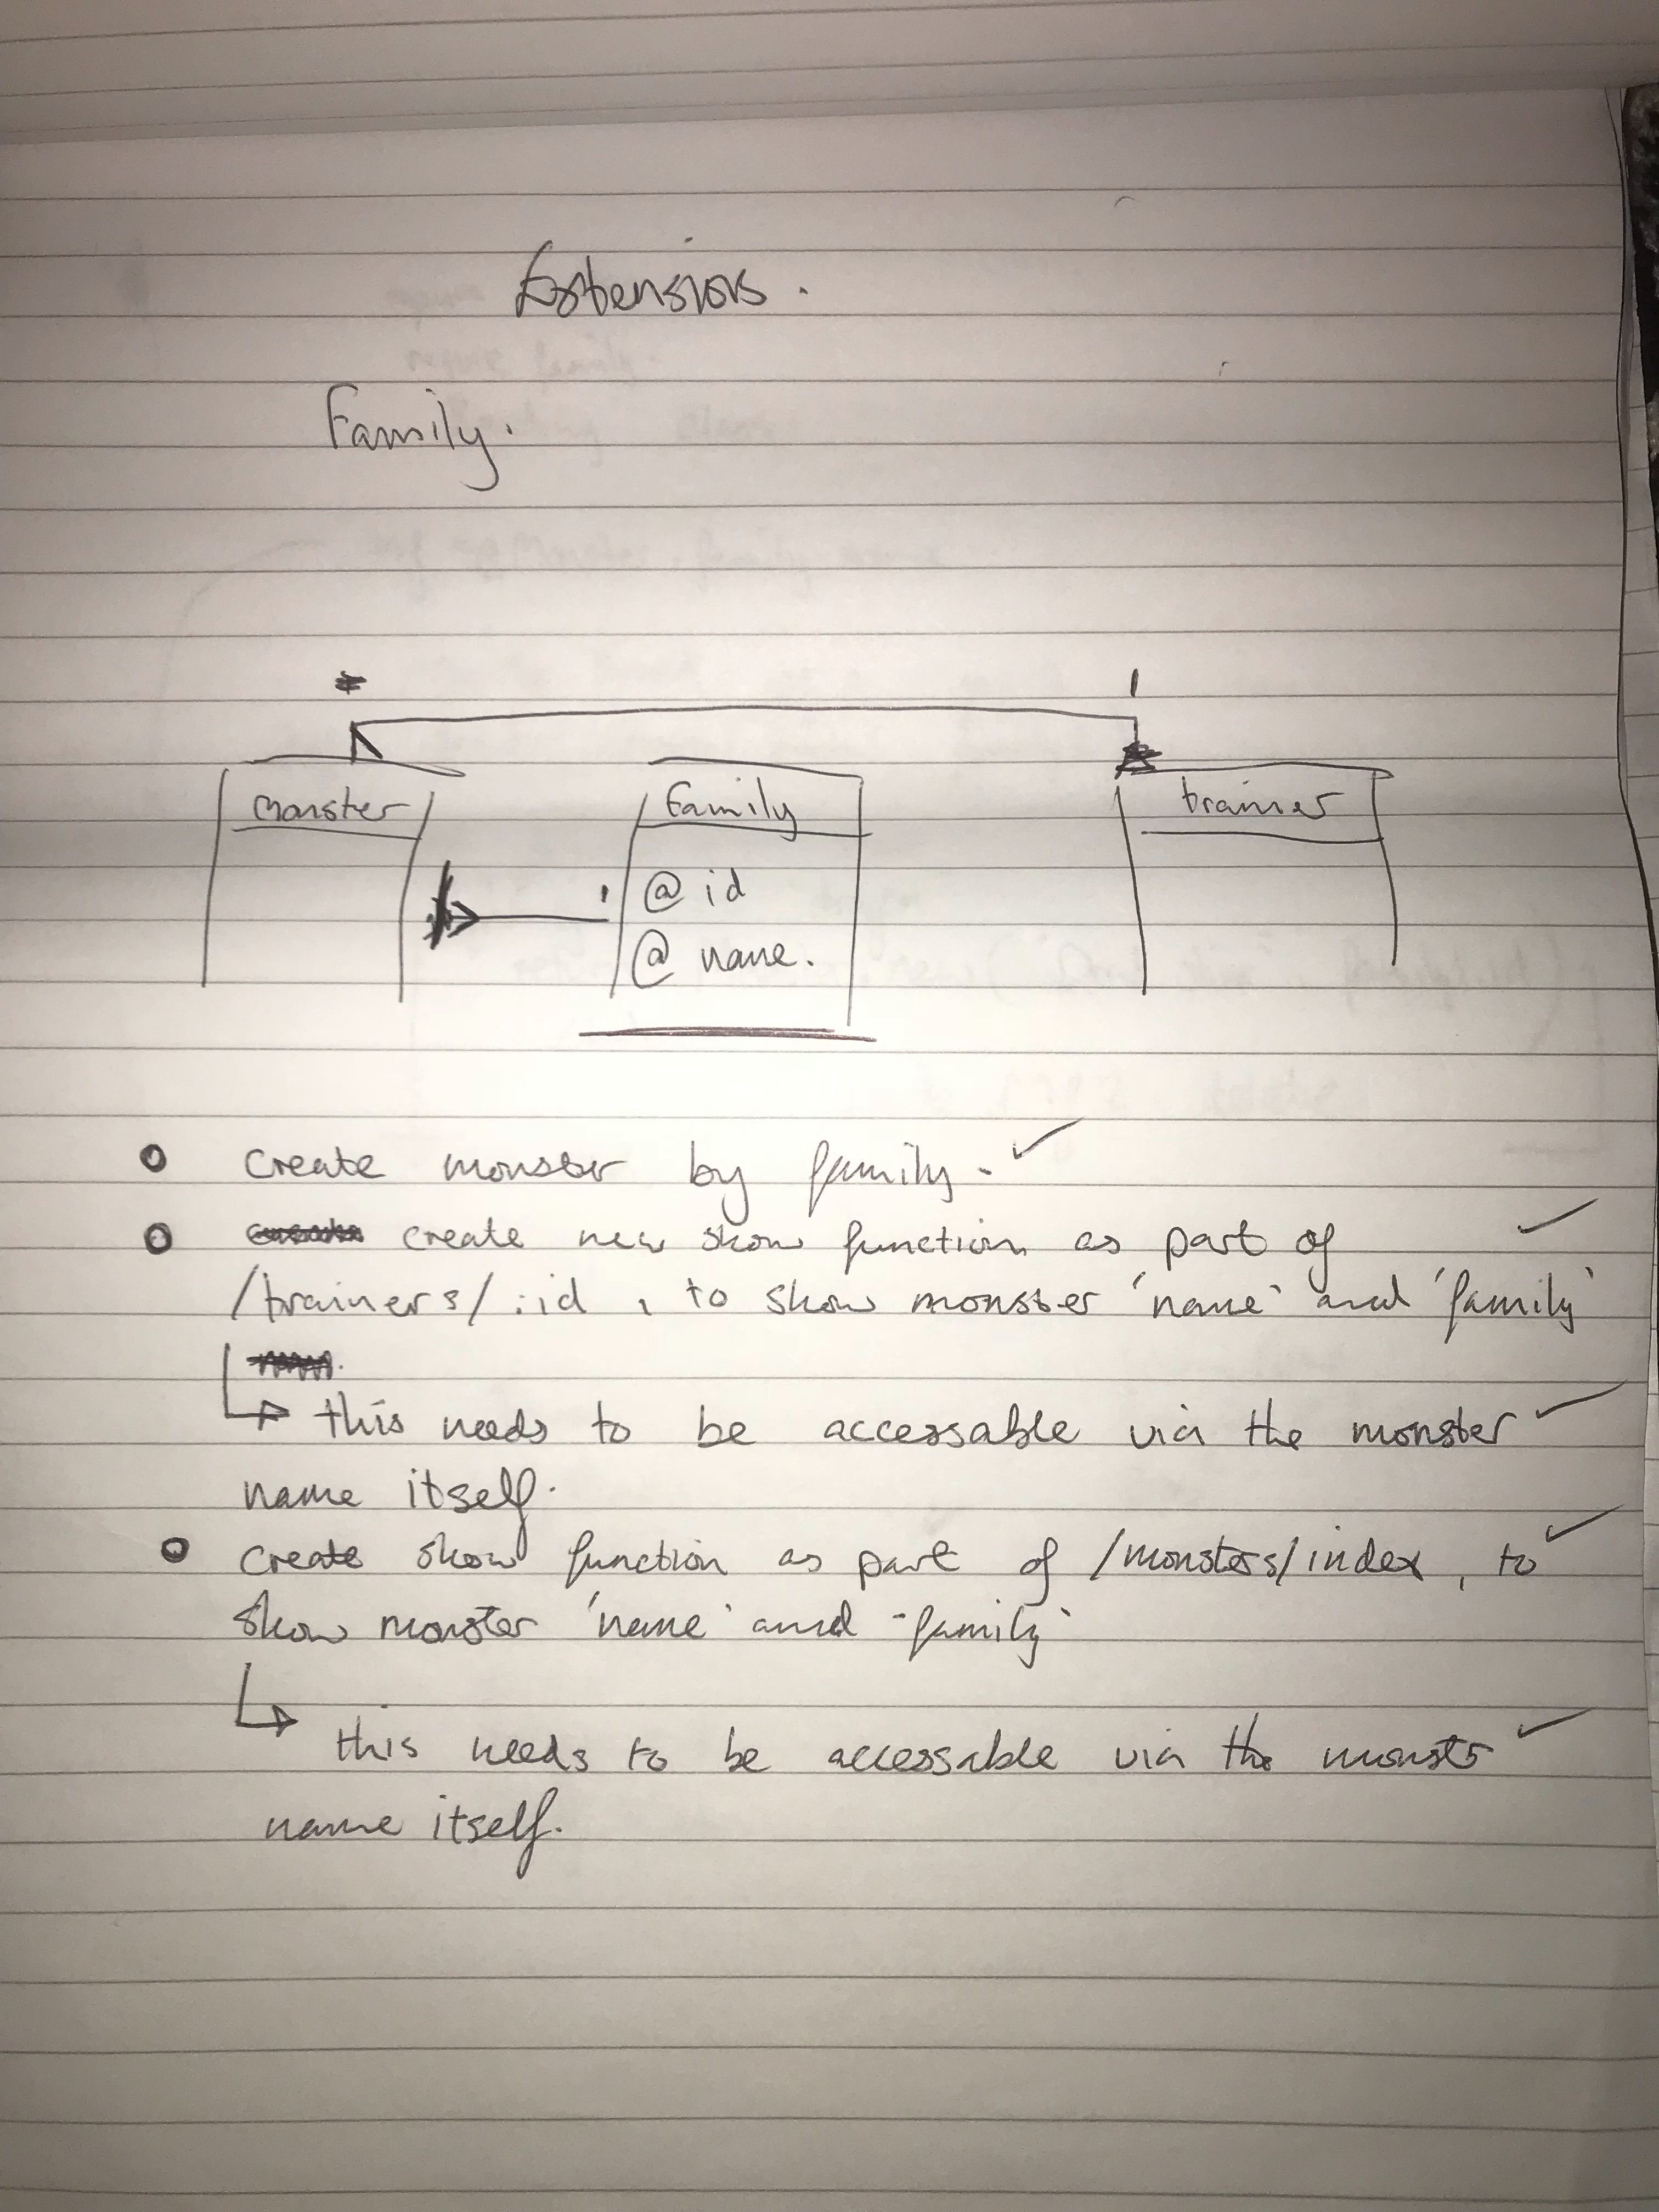 Extensions.
Family.
* 1
monster Family trainer
1 @ id
@ name.
create monster by family.
create new show function as part of
/trainers/:id, to show monster 'name' and 'family'
this needs to be accessable via the monster
name itself.
create show function as part of /monsters/index, to
show monster 'name' and 'family'
this needs to be accessable via the monster
name itself.